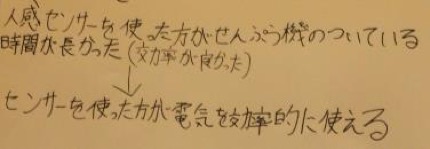 人感センサーを使った方がせんぷう機のついている
時間が長かった(効率が良かった)
↓
センサーを使った方が電気を効率的に使える